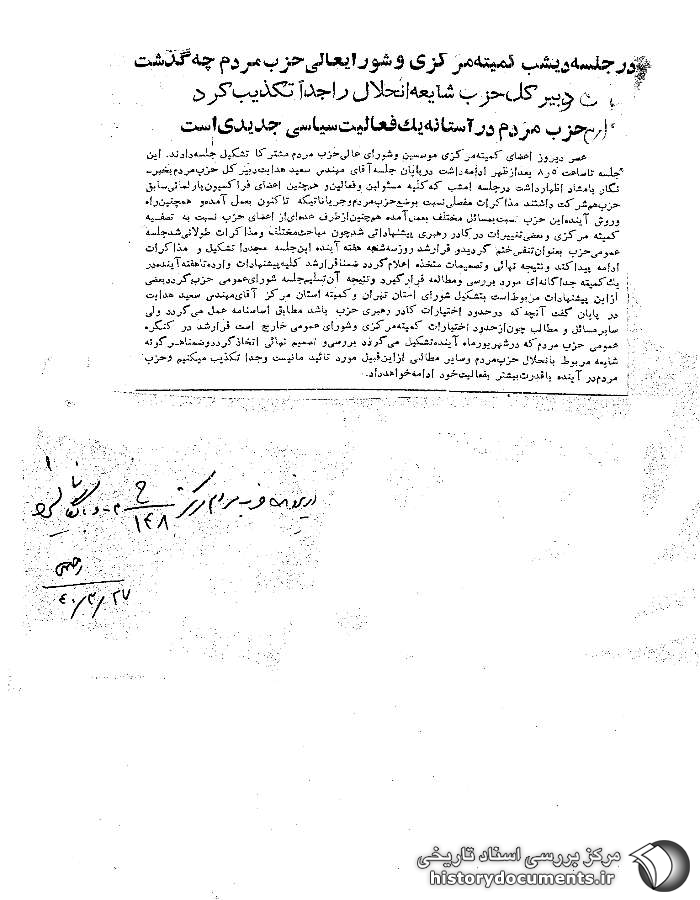 در جلسه دیشب کمیته مرکزی و شورایعالی حزب مردم چه گذشت
دبیر کل حزب شایعه انحلال را جداً تکذیب کرد
حزب مردم در آستانه یك فعالیت سیاسی جدیدی است
عصر دیروز اعضای کمیته مرکزی موسسین وشورای عالی حزب مردم مشترکا تشکیل جلسه دادند. این
جلسه تاساعت ۸٫۵ بعدازظهر ادامه داشت در پایان جلسه آقای مهندس سعید هدایت دبیر کل حزب مردم بخبر-
نگار بامشاد اظهارداشت درجلسه امشب که کلیه مسئولین وفعالین و همچنین اعضای فراکسیون پارلمانی سابق
حزب هم شرکت داشتند مذاکرات مفصلی نسبت بوضع حزب مردم وجریاناتیکه تاکنون بعمل آمده و همچنین راه
وروش آینده این حزب نسبت بمسائل مختلف بعمل آمده همچنین ازطرف عده‌ای از اعضای حزب نسبت به تصفیه
کمیته مرکزی و بعضی تغییرات در کادر رهبری پیشنهاداتی شد چون مباحث مختلف و مذاکرات طولانی شد جلسه
عمومی حزب بعنوان تنفس ختم گردید و قرارشد روز سه شنبه هفته آینده این جلسه مجددا تشکیل و مذاکرات
ادامه پیدا کند و نتیجه نهائی و تصمیمات متخذه اعلام گردد ضمنا قرارشد کلیه پیشنهادات وارده تا هفته آینده در
یك کمیته جداگانه‌ای مورد بررسی ومطالعه قرار گیرد ونتیجه آن تسلیم جلسه شورای عمومی حزب گردد بعضی
از این پیشنهادات مربوط است بتشکیل شورای استان تهران و کمیته استان مرکز آقای مهندس سعید هدایت
در پایان گفت آنچه که در حدود اختیارات کادر رهبری حزب باشد مطابق اساسنامه عمل می گردد ولی
سایر مسائل و مطالب چون از حدود اختیارات کمیته مرکزی وشورای عمومی خارج است قرارشد در کنگره
عمومی حزب مردم که در شهریور ماه آینده تشکیل می گردد بررسی و تصمیم نهائی اتخاذ گردد و ضمنا هر گونه
شایعه مربوط بانحلال حزب مردم وسایر مطالبی از این قبیل مورد تائید ما نیست وجدا تکذیب میکنیم و حزب
مردم در آینده با قدرت بیشتر بفعالیت خود ادامه خواهد داد.
در پرونده حزب مردم
ح
۱۴۸
۴۰/۳/۲۷
مرکز بررسی اسناد تاریخی
historydocuments.ir